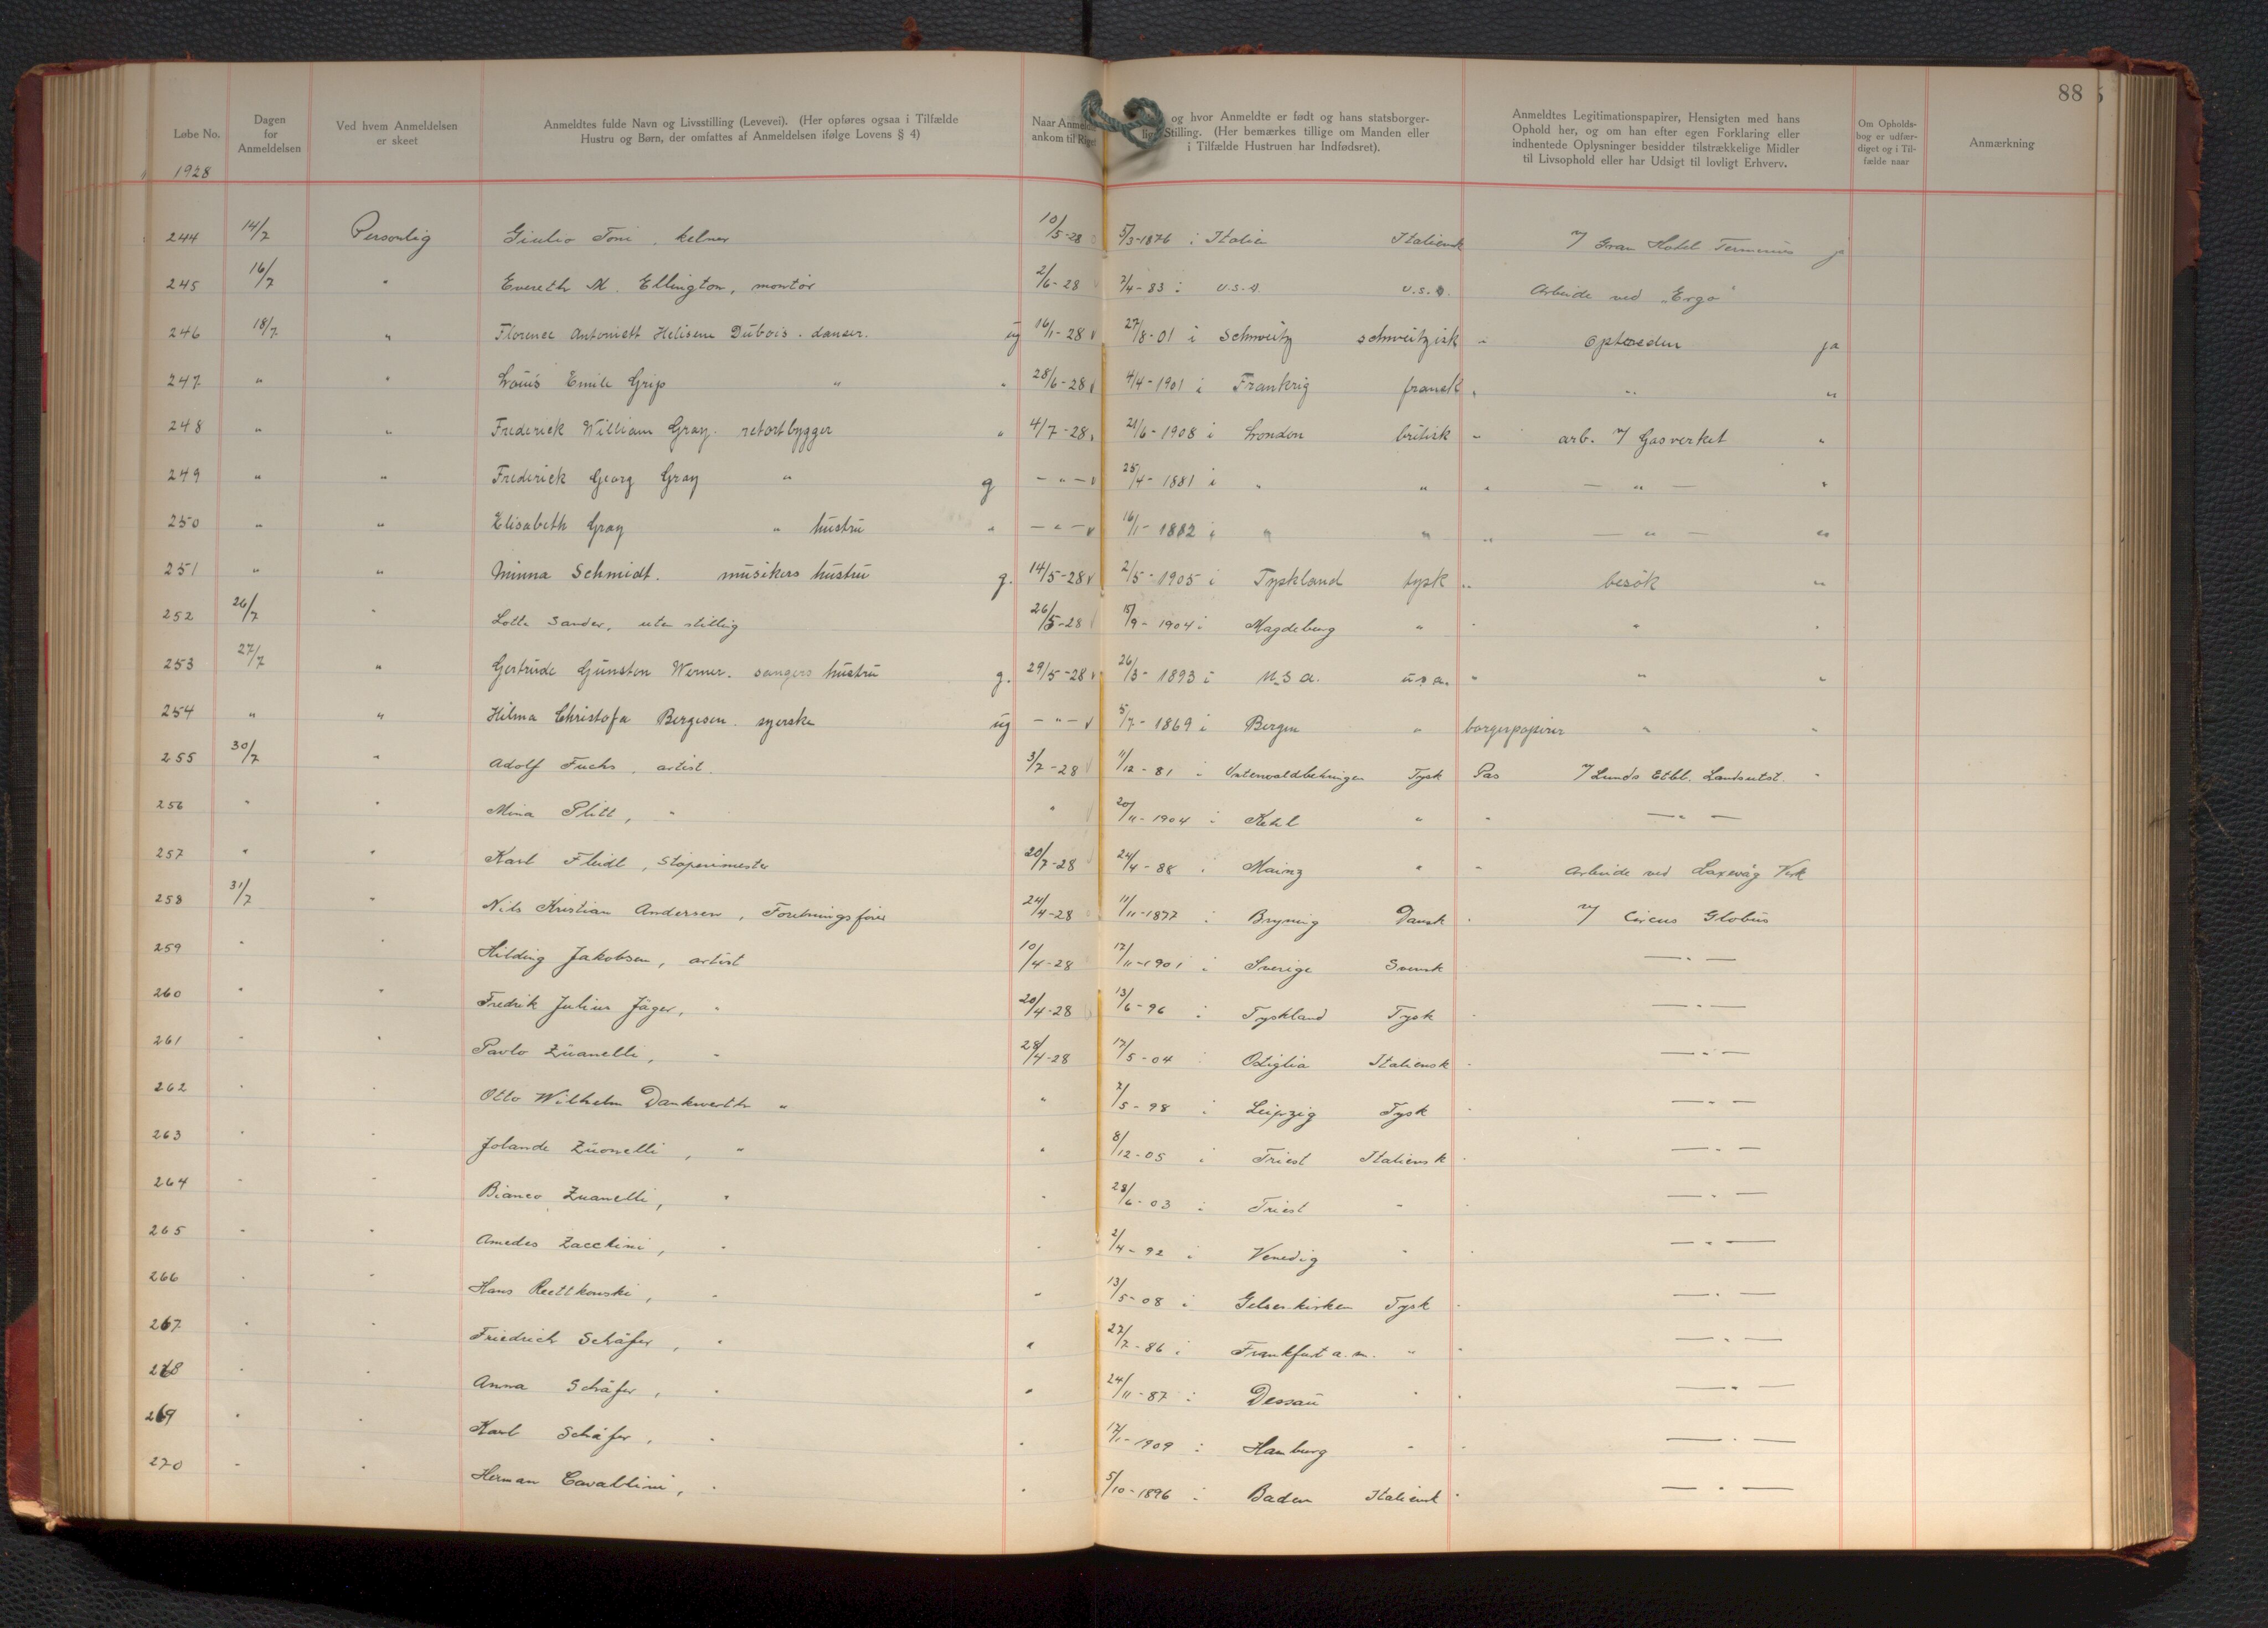 88
Løbe No.
Dagen for Anmeldelsen
Ved hvem Anmeldelsen er skeet
Anmeldtes fulde Navn og Livsstilling (Levevei). (Her opføres ogsaa i Tilfælde Hustru og Børn, der omfattes af Anmeldelsen ifølge Lovens § 4)
Naar Anmeld ankom til Riget
og hvor Anmeldte er født og hans statsborger- lige Stilling. (Her bemærkes tillige om Manden eller i Tilfælde Hustruen har Indfødsret).
Anmeldtes Legitimationspapirer, Hensigten med hans Ophold her, og om han efter egen Forklaring eller indhentede Oplysninger besidder tilstrækkelige Midler til Livsophold eller har Udsigt til lovligt Erhverv.
Om Opholds- bog er udfær- diget og i Til- fælde naar
Anmærkning
1928
244 14/7 Personlig Giulio Toni, kelner 10/5-28 5/3-1876 i Italien Italiensk v/ Gran Hotel Terminus ja
245 16/7 " Evereth M. Ellington, montör 2/6-28 7/4-83 i U.S.A. U.S.A. Arbeide ved "Ergo"
246 18/7 " Florence Antoniett Helisene Dubois. danser. ug 16/1-28 v 27/8-01 i Schweitz schweitzisk " optræden ja
247 " " Louis Emile Grip " " 28/6-28 v 4/4-1901 i Frankrig fransk " " "
248 " " Frederick William Gray. retortbygger " 4/7-28 v 21/6-1908 i London britisk " arb. v/ Gasverket "
249 " " Frederick Georg Gray " g - " - v 25/4-1881 i " " " - " - "
250 " " Elisabeth Gray " hustru " - " - v 16/1-1882 i " " " - " - "
251 " " Minna Schmidt. musikers hustru g. 14/5-28 v 2/5-1905 i Tyskland tysk " besök "
252 26/7 " Lotte Sander, uten stilling 26/5-28 15/9-1904 i Magdeburg " " " "
253 27/7 " Gertrude Gunston Werner. sangers hustru g. 29/5-28 v 26/3-1893 i U.S.A. u.s.a. " " "
254 " " Hilma Christofa Bergesen. syerske ug - " - v 5/7-1869 i Bergen " borgerpapirer " "
255 30/7 " Adolf Fuchs, artist. 3/7-28 11/12-81 i Tysk Pas v/ Lunds Etbl. Landsutst. "
256 " " Mina Plitt, " " 20/11-1904 i Kehl " " - " -
257 " " Karl Fleidl, Støperimester 20/7-28 24/4-88 i Mainz " " Arbeide ved Laxevåg Verk
258 31/7 " Nils Kristian Andersen, Foretningsfører 24/4-28 11/11-1877 i Bryning Dansk " v/ Circus Globus
259 " " Hilding Jakobsen, artist 10/4-28 17/11-1901 i Sverige Svensk - " -
260 " " Fredrik Julius Jäger, " 20/4-28 13/6-96 i Tyskland Tysk " - " -
261 " " Pavlo Zuanelli, " 28/4-28 17/5-04 i Ostiglia Italiensk " - " -
262 " " Otto Wilhelm Dankwerth " " 7/5-98 i Leipzig Tysk " - " -
263 " " Jolande Zuonelli, " " 8/12-05 i Triest Italiensk " - " -
264 " " Bianco Zuanelli, " " 28/6-03 i Triest " " - " -
265 " " Amedes Zacchini, " " 2/4-92 i Venedig " " - " -
266 " " Hans Reettkowski, " " 13/5-08 i Gelsenkirken Tysk " - " -
267 " " Friedrich Schäfer, " " 27/7-86 i Frankfurt a. m. " " - " -
268 " " Anna Schäfer, " " 24/11-87 i Dessau " " - " -
269 " " Karl Schäfer, " " 17/1-1909 i Hamburg " " - " -
270 " " Herman Cavallini, " " 5/10-1896 i Baden Italiensk " - " -